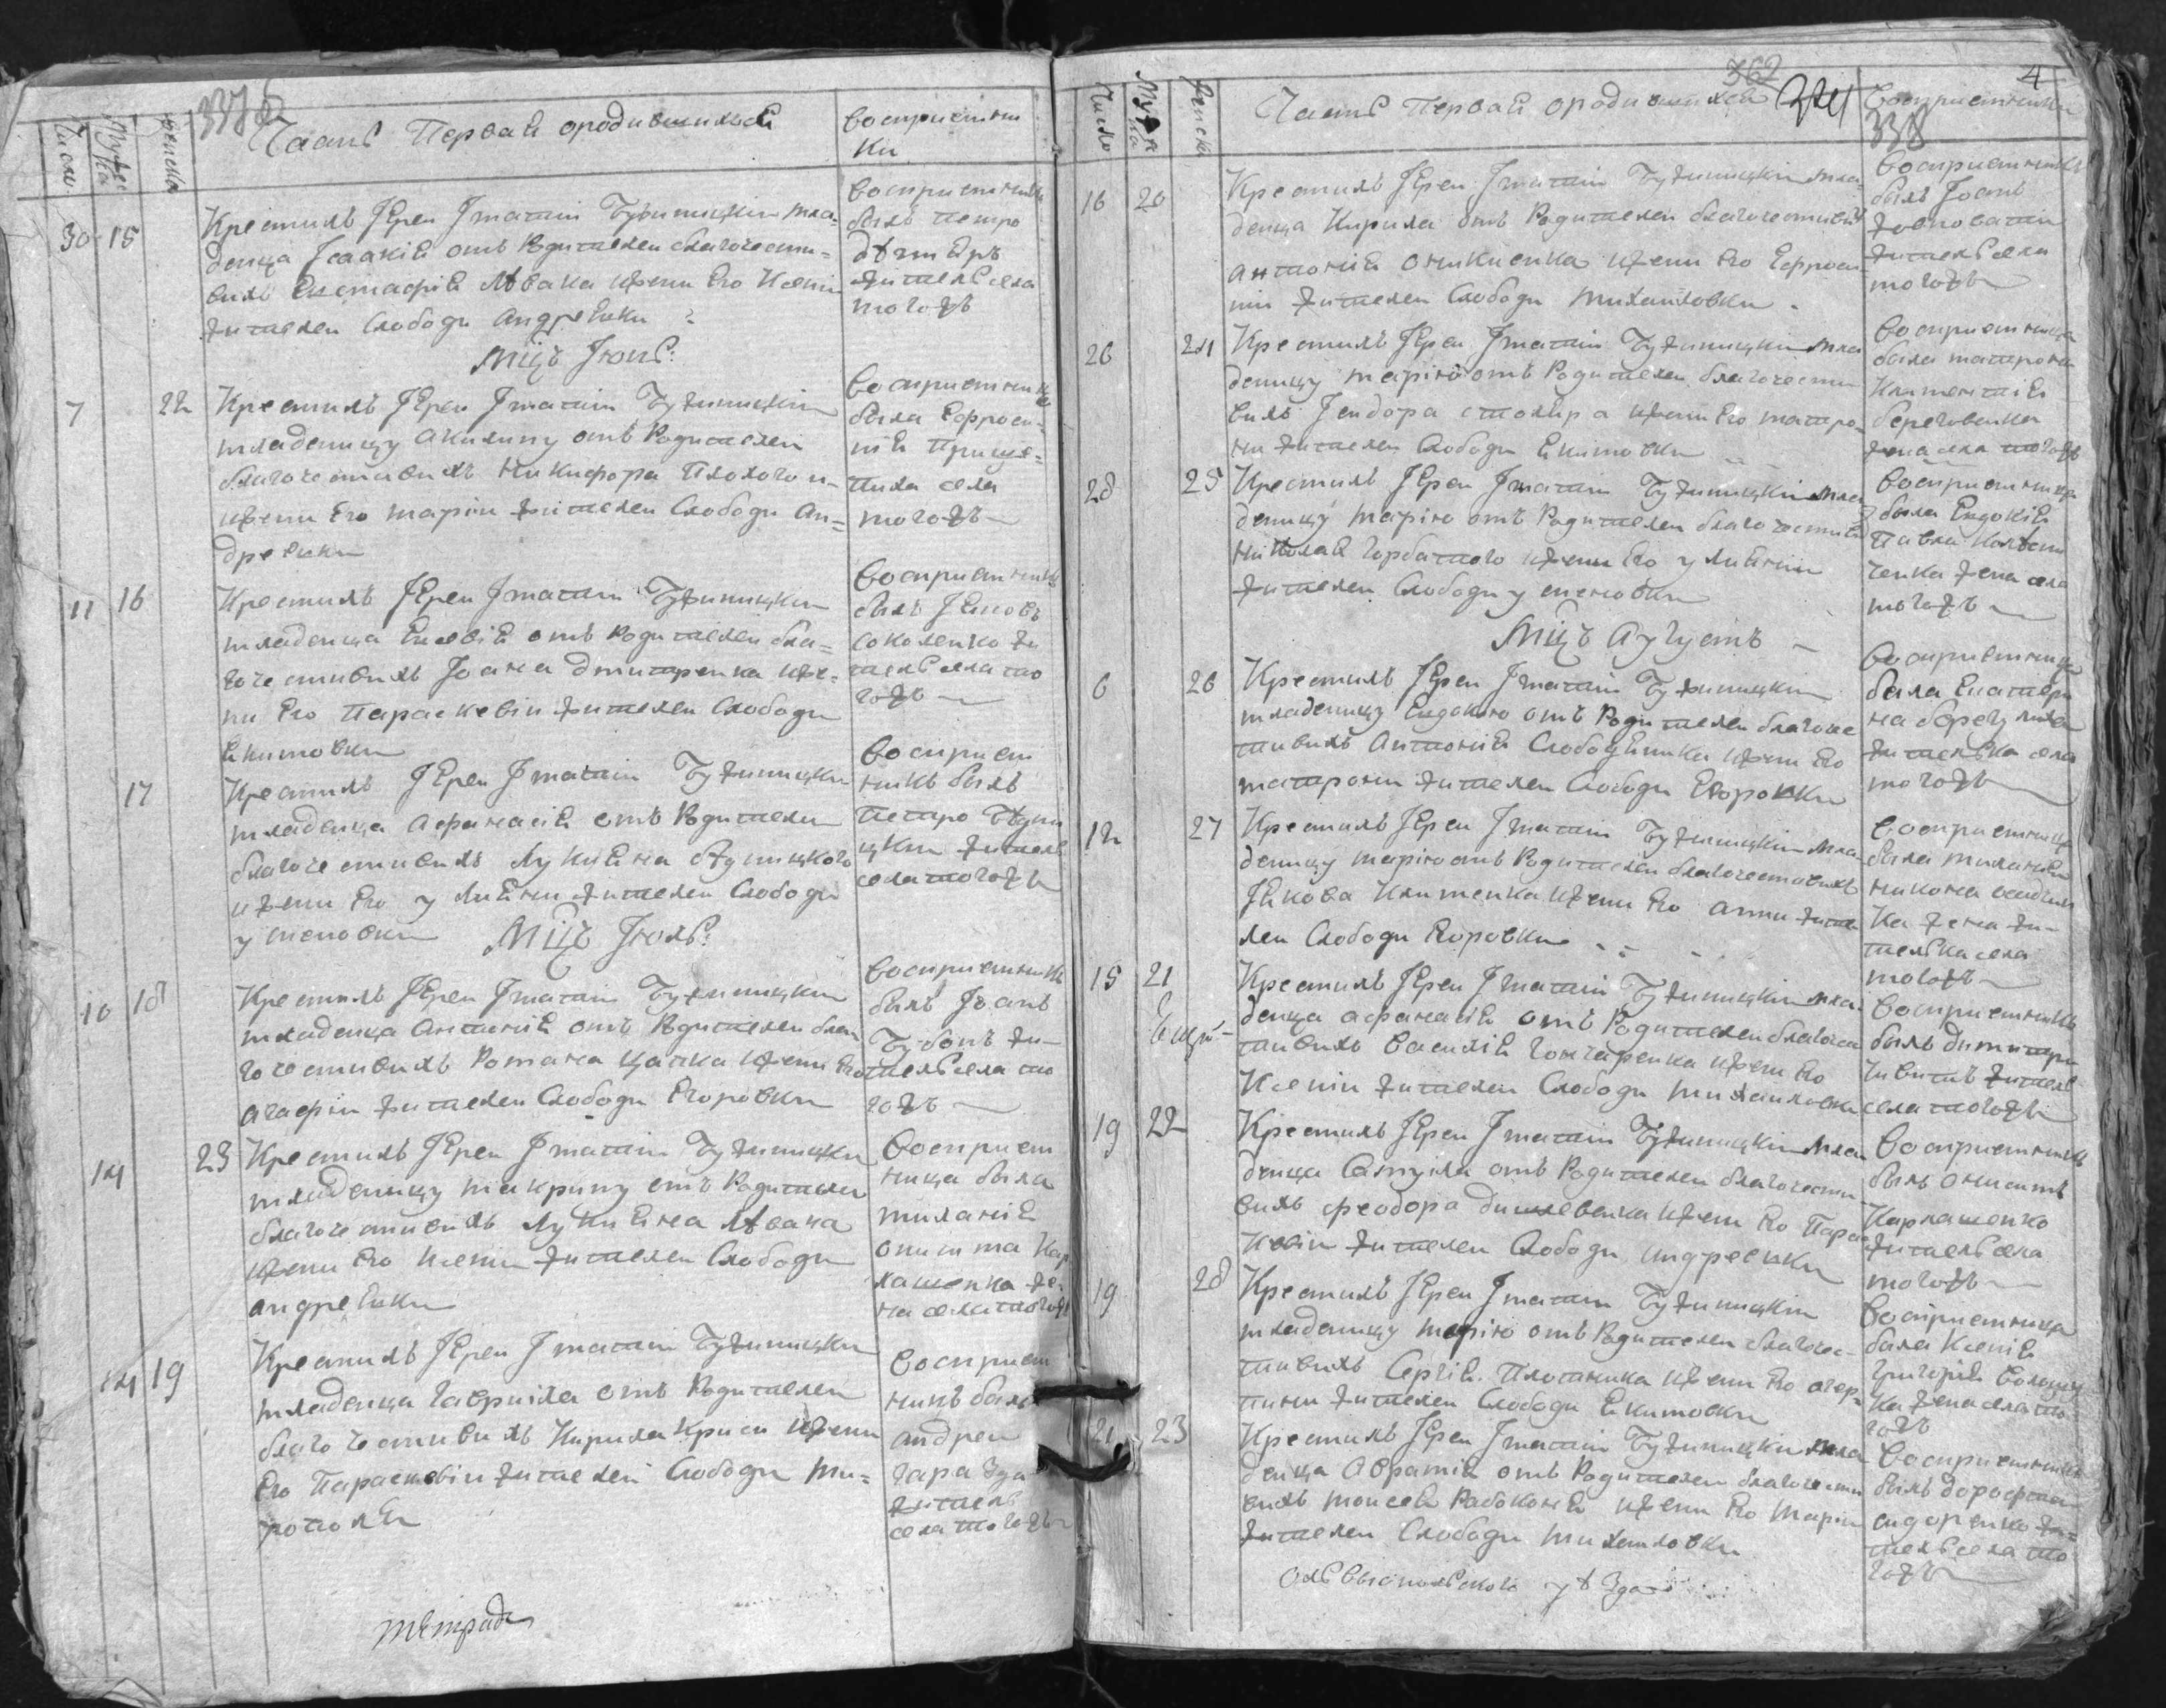 Число
Мужеска
женска
Часть Первая ородившихся
восприемни
ки
30 15
Крестилъ Іерей Игнатій Бужиницкій мла=
денца Ісаакія отъ Родителей благочести=
вихъ Евстафія Лѣвака ижени Его Ксеніи
жителей Слободи Андреевки
восприемникъ
билъ Петро
житель села
тогожъ
Мцъ Іюнь:
7 22
Крестилъ Іерей Игнатій Бужиницкій
младеницу Акилину отъ Родителей
благочестивихъ Никифора Плохого и=
ижени Его Маріи жителей Слободи Ан=
дреевки
восприемница
била Ефроси=
нія
села
тогожъ
11 16
Крестилъ Іерей Игнатій Бужиницкій
младенца Евсевія отъ Родителей бла=
гочестивихъ Іоана Дмитренка иже=
ни Его Параскевіи жителей Слободи
Екимовки
восприемникъ
билъ Іяковъ
Соколенко жи
тель села то
гожъ
17
Крестилъ Іерей Игнатій Бужиницкій
младенца Афанасія отъ Родителей
благочестивихъ Лукияна
ижени Его Улияни жителей Слободи
Усменовки
восприем
никъ билъ
Петро
житель
села тогожъ
Мцъ Іюль:
10 18
Крестилъ Іерей Игнатій Бужиницкій
младенца Антонія отъ Родителей бла
гочестивихъ Романа Цапка ижени Его
Агафіи жителей Слободи Егоровки
восприемникъ
билъ Іоанъ
жи=
тель села то
гожъ
14 23
Крестилъ Іерей Игнатій Бужиницкій
младеницу Макрину отъ Родителей
благочестивихъ Лукияна Лѣвака
ижени Его Ксеніи жителей Слободи
Андреевки
восприем
ница била
Миланія
Онисима Кар
лашенка же=
на села тогожъ
14 19
Крестилъ Іерей Игнатій Бужиницкій
младенца Гавриіла отъ Родителей
благочестивихъ Кирила Криси ижени
Его Параскевіи жителей Слободи Ми=
восприем
никъ билъ
Андрей
житель
села тогожъ
362
4
338
Число
Мужеска
женска
Часть Первая ородившихся
восприемники
16 20
Крестилъ Іерей Игнатій Бужиницкій мла=
денца Кирила отъ Родителей благочестивихъ
Антонія Оникиенка ижени Его Ефроси
ніи жителей Слободи Михайловки
восприемникъ
билъ Іоанъ
житель села
тогожъ
26 24
Крестилъ Іерей Игнатій Бужиницкій мла
деницу Марію отъ Родителей благочести
вихъ Ісидора Столяра ижени Его Матро=
ни жителей Слободи Екимовки
восприемница
била Матрона
Климентія
Береговенка
жена села тогожъ
28 25
Крестилъ Іерей Игнатій Бужиницкій мла
деницу Марію отъ Родителей благочестивихъ
Николая Горбатого ижени Его Улияни
жителей Слободи Усменовки
восприемница
била Евдокія
Павла
ченка жена села
тогожъ
Мцъ Аугустъ
6 26
Крестилъ Іерей Игнатій Бужиницкій
младеницу Евдокію отъ Родителей благочес
тивихъ Антонія Слободяника ижени Его
Матрони жителей Слободи Егоровки
восприемница
била Екатери
на
жителька села
тогожъ
12 27
Крестилъ Іерей Игнатій Бужиницкій мла
деницу Марію отъ Родителей благочестивихъ
Іякова Клименка ижени Его Анни жите
лей Слободи Егоровки
восприемница
била Миланія
Никона
ка жена жи=
телька села
тогожъ
15 21
Крестилъ Іерей Игнатій Бужиницкій мла
денца Афанасія отъ Родителей благочес
тивихъ Василія Гончаренка ижени Его
Ксеніи жителей Слободи Михайловки
восприемникъ
билъ Димитри
житель
села тогожъ
19 22
Крестилъ Іерей Игнатій Бужиницкій мла
денца Самуила отъ Родителей благочести
вихъ Феодора ижени Его Парас
кевіи жителей Слободи Андреевки
восприемникъ
билъ Онисимъ
Карлашенко
житель села
тогожъ
19 28
Крестилъ Іерей Игнатій Бужиницкій
младеницу Марію отъ Родителей благочес=
тивихъ Сергія Плотника ижени Его
жителей Слободи Екимовки
восприемница
била Ксенія
Григорія
ка жена села то
гожъ
21 23
Крестилъ Іерей Игнатій Бужиницкій мла
денца Аврамія отъ Родителей благочести
вихъ Моисея Рабоконя ижени Его Маріи
жителей Слободи Михайловки
восприемникъ
билъ Дорофей
Сидоренко жи=
тель села то
гожъ